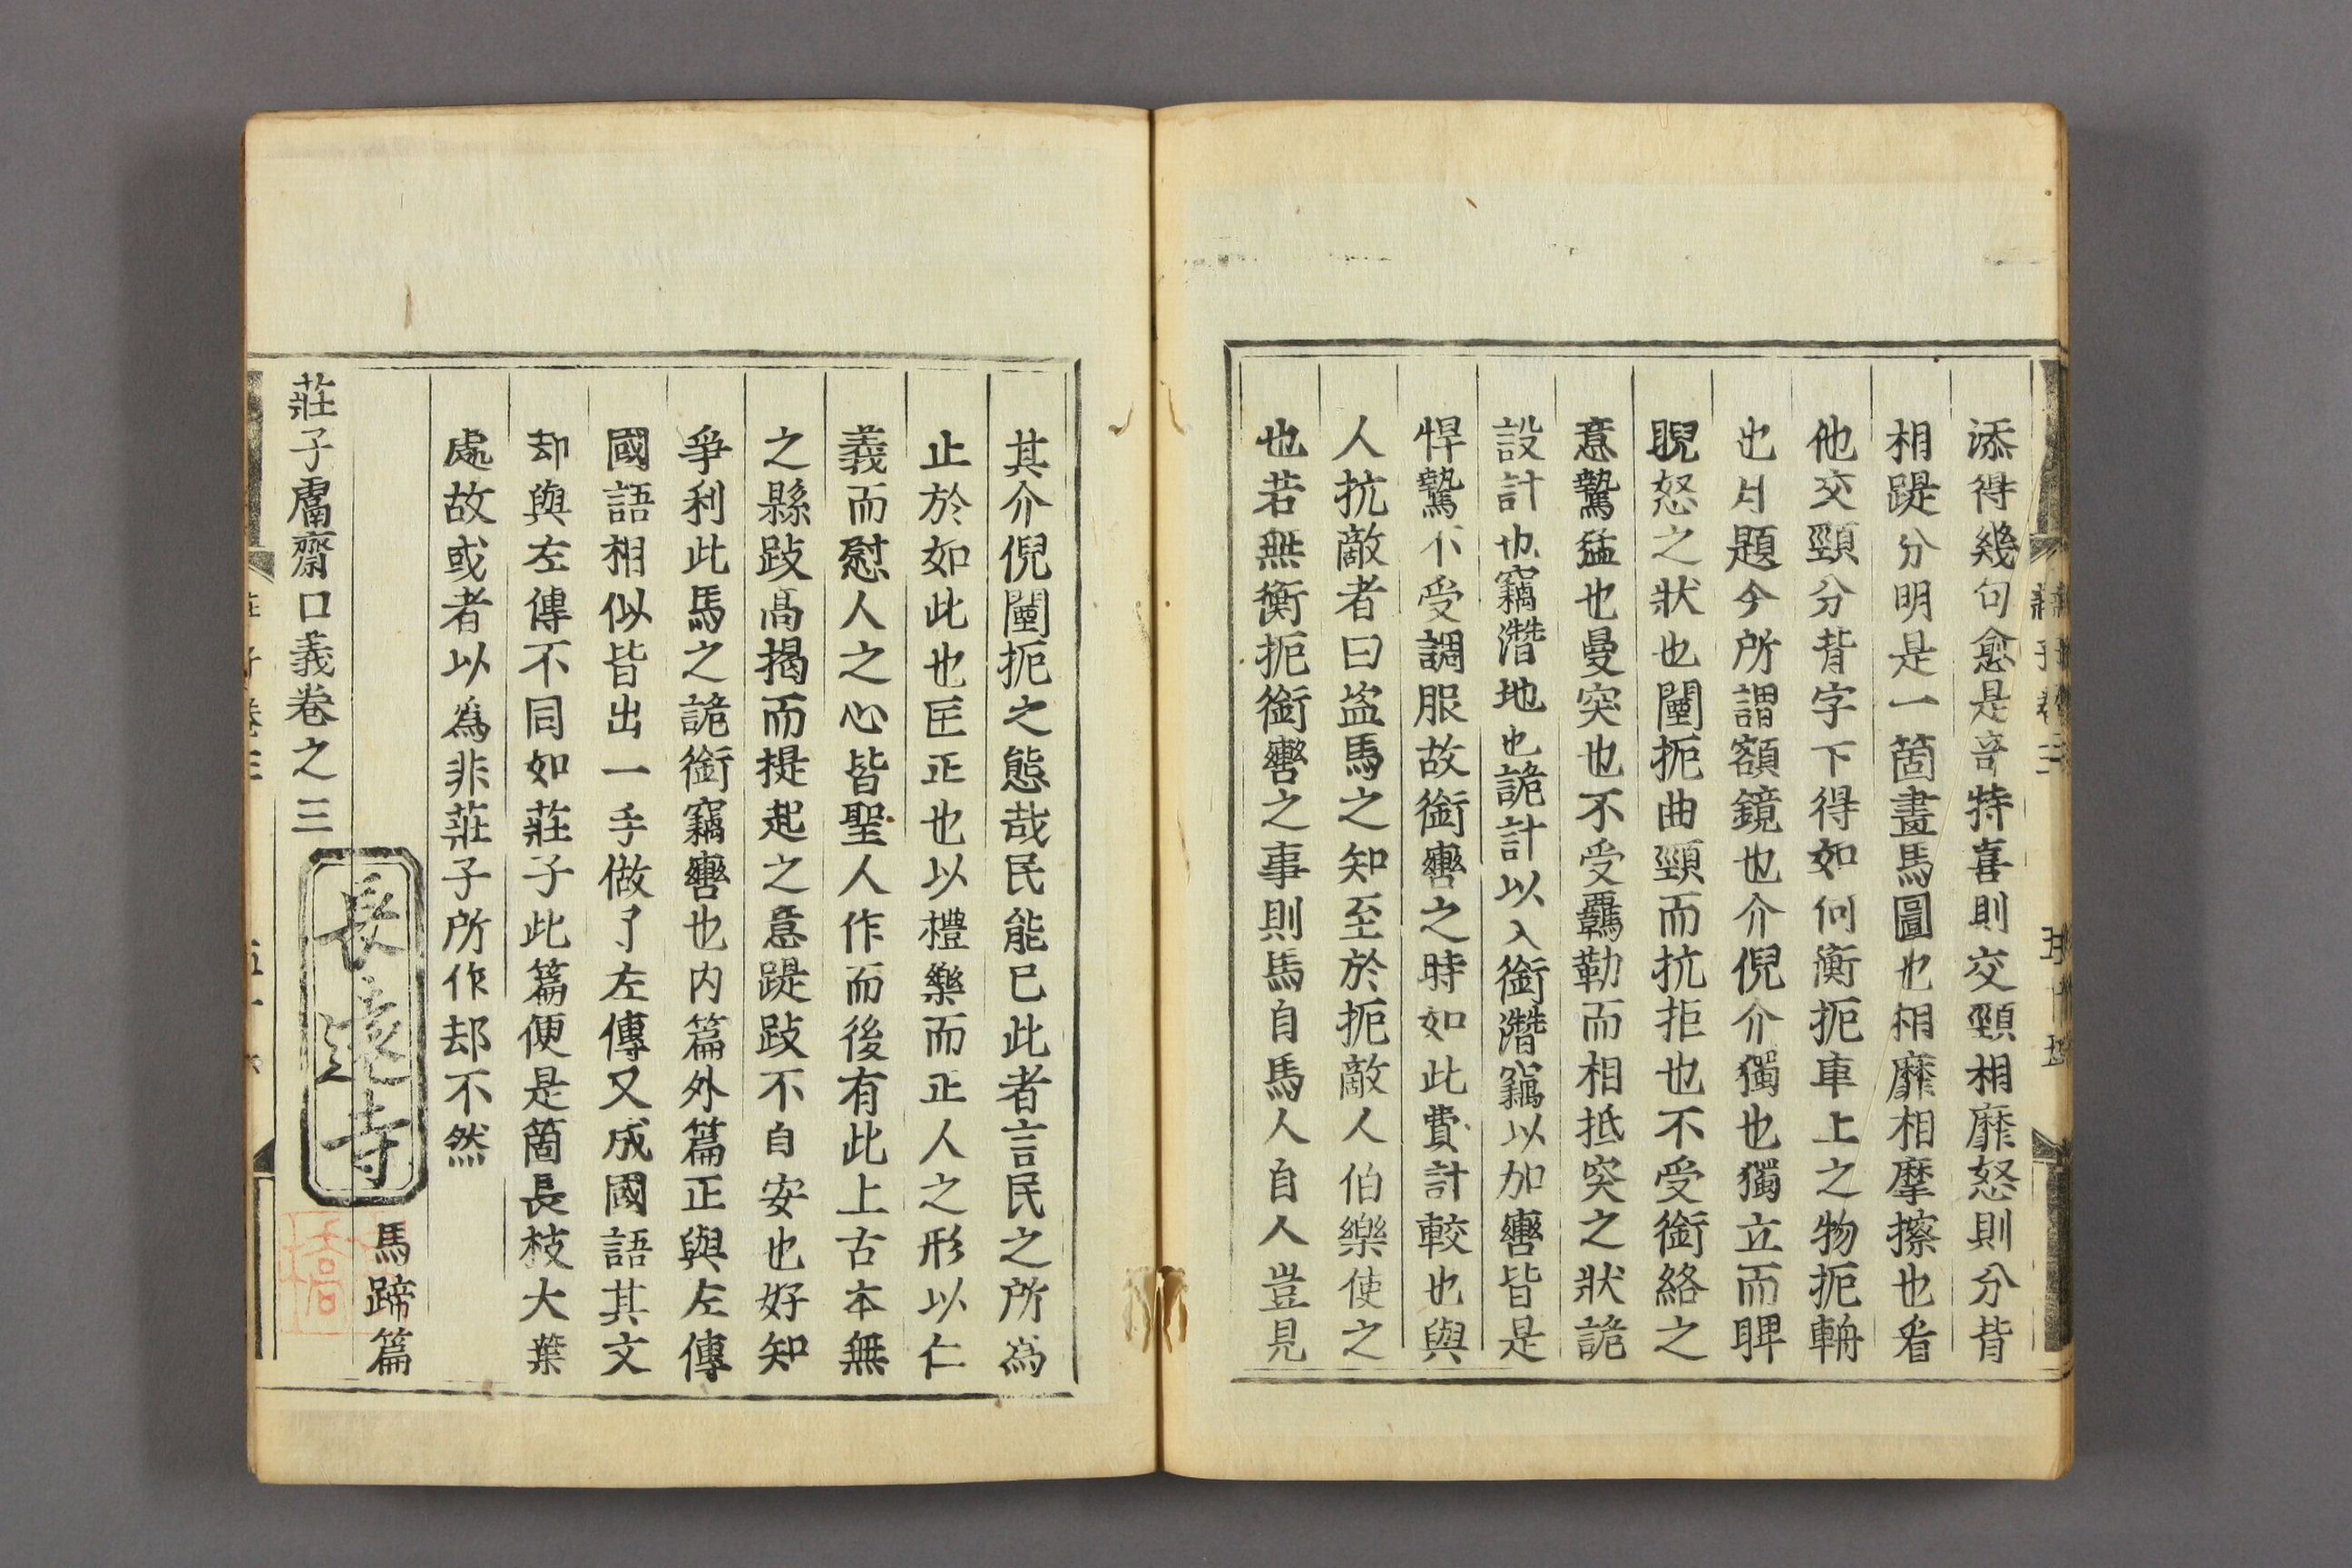 添得幾句愈是竒特喜則交頸相靡怒則分背
相踶分明是一箇畫馬圖也相靡相摩擦也看
他交頸分背字下得如何衡扼車上之物扼輈
也月題今所謂額鏡也介倪介獨也獨立而睥
睨怒之狀也闉扼曲頸而抗拒也不受銜絡之
意鷙猛也曼突也不受羈勒而相抵突之狀詭
設計也竊潛地也詭計以入銜潛竊以加轡皆是
悍鷙不受調服故銜轡之時如此費計較也與
人抗敵者曰盜馬之知至於扼敵人伯樂使之
也若無衡扼銜轡之事則馬自馬人自人豈見
其介倪闉扼之態哉民能已此者言民之所爲
止於如此也匡正也以禮樂而正人之形以仁
義而慰人之心皆聖人作而後有此上古本無
之縣跂高揭而提起之意踶跂不自安也好知
爭利此馬之詭銜竊轡也内篇外篇正與左傳
國語相似皆出一手做了左傳又成國語其文
却與左傳不同如莊子此篇便是箇長枝大葉
處故或者以爲非莊子所作却不然
馬蹄篇
莊子鬳齋口義卷之三
長遠寺